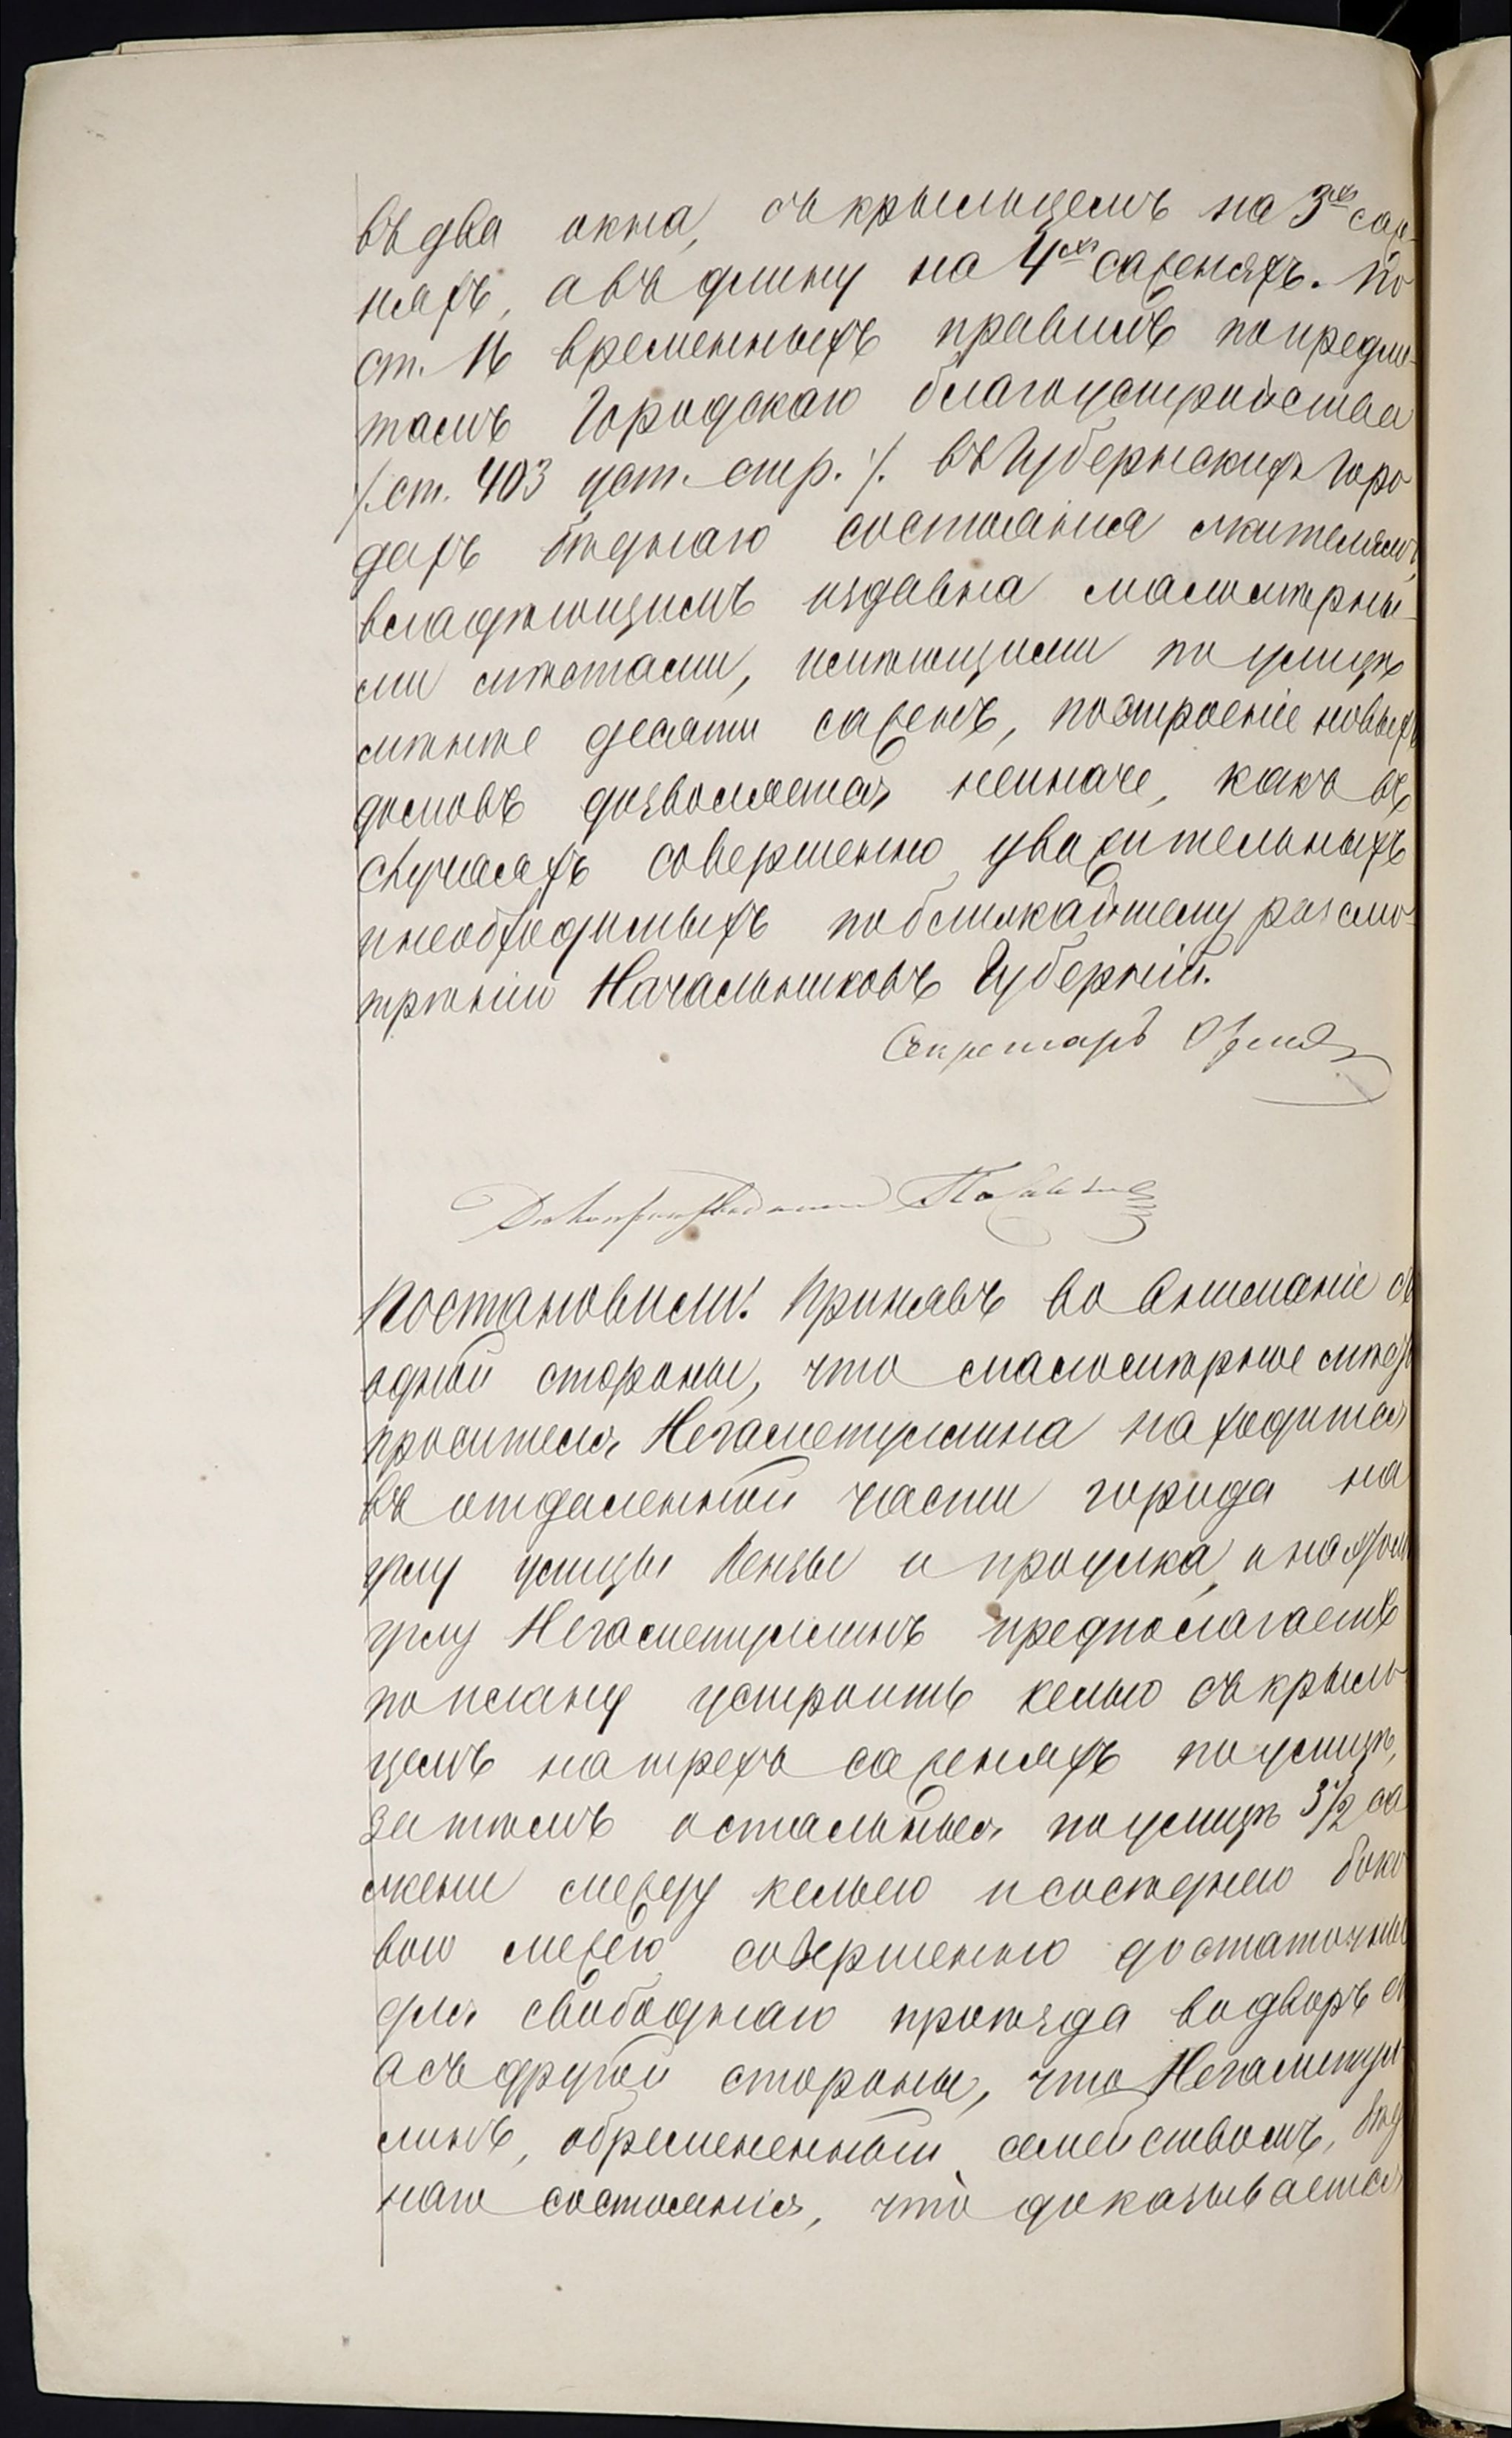 въ два окна, съ крыльцемъ на 3хъ саж-
няхъ, а въ длину на 4хъ саженяхъ. По
ст. 16 временныхъ правилъ по предме-
тамъ Городскаго благоустройства
/. ст. 403 уст. стр. /. въ Губернскихъ Горо
дахъ бѣднаго состоянія жителямъ,
владѣющимъ издавна маломѣрны-
ми мѣстами, имѣющими по улицѣ
мѣнѣе десяти саженъ, построеніе новыхъ
домовъ дозволяется неиначе, какъ въ
случаяхъ совершенно уважительныхъ
и необходимыхъ по ближайшему разсмо-
трѣнію Начальниковъ Губерній.
Секретарь
Постановили: Принявъ во вниманіе съ
одной стороны, что маломѣрное мѣсто
просителя Негаметуллина находится
въ отдаленной части города на
углу улицы Пензы и проулка, и на этомъ
углу Негаметуллинъ предполагаетъ
по плану устроить келью съ крыль
цемъ на трехъ саженяхъ по улицѣ,
затѣмъ остальныя по улицѣ 3½ са
жени между кельею и сосѣднею боко
вою межею совершенно достаточны
для свободнаго проѣзда во дворъ
а съ другой стороны, что Негаметул-
линъ, обремененный семействомъ, бѣд
наго состоянія, что доказывается